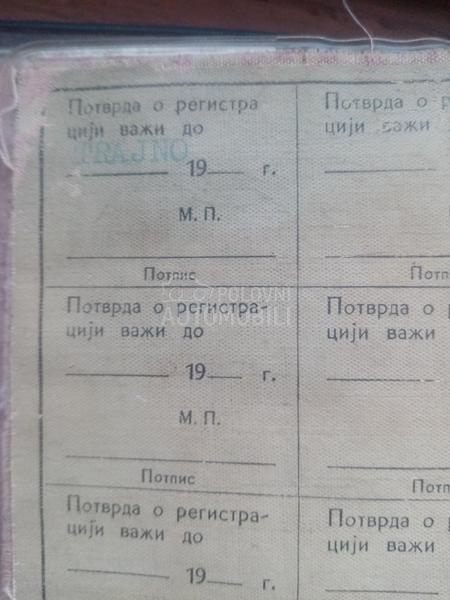 Потврда о регистра
цији важи до
TRAJNO
19 г.
М. П.
Потпис
Потврда о регистра-
цији важи до
19 г.
М. П.
Потпис
Потврда о регистра-
цији важи до
19 г.
Потврда о р
цији важи
Потп
Потврда о р
цији важи
Потп
Потврда о р
цији важи
POLOVNI
AUTOMOBILI